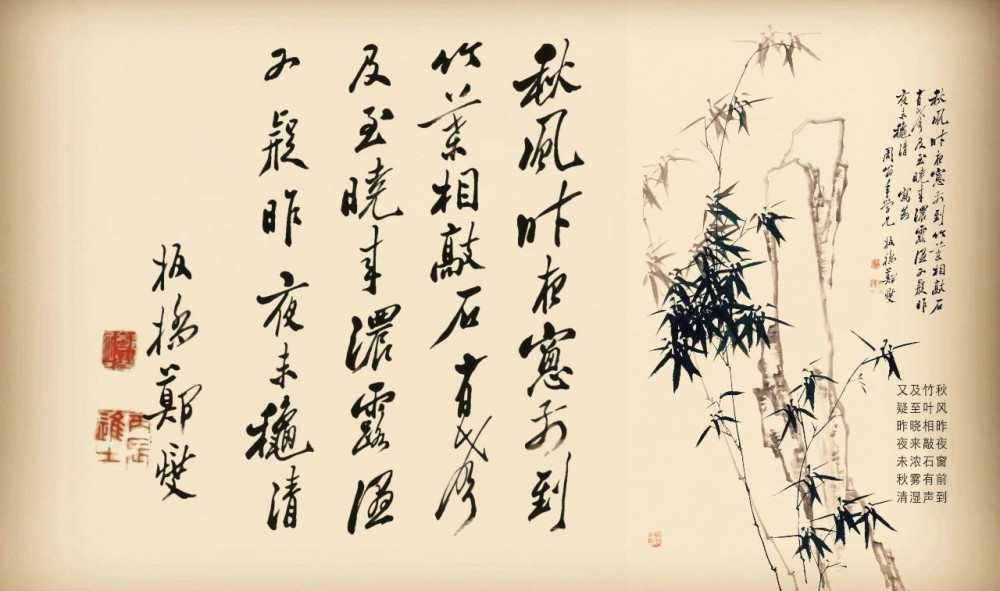 秋風昨夜窻前到
竹葉相敲石有聲
及至曉来濃露濕
又疑昨夜未穐清
板橋鄭燮
丙辰進士
秋風昨夜窻前到竹葉相敲石
有聲及至曉来濃露濕又疑昨
夜未穐清
年學兄 板橋鄭燮
秋风昨夜窗前到
竹叶相敲石有声
及至晓来浓雾湿
又疑昨夜未秋清